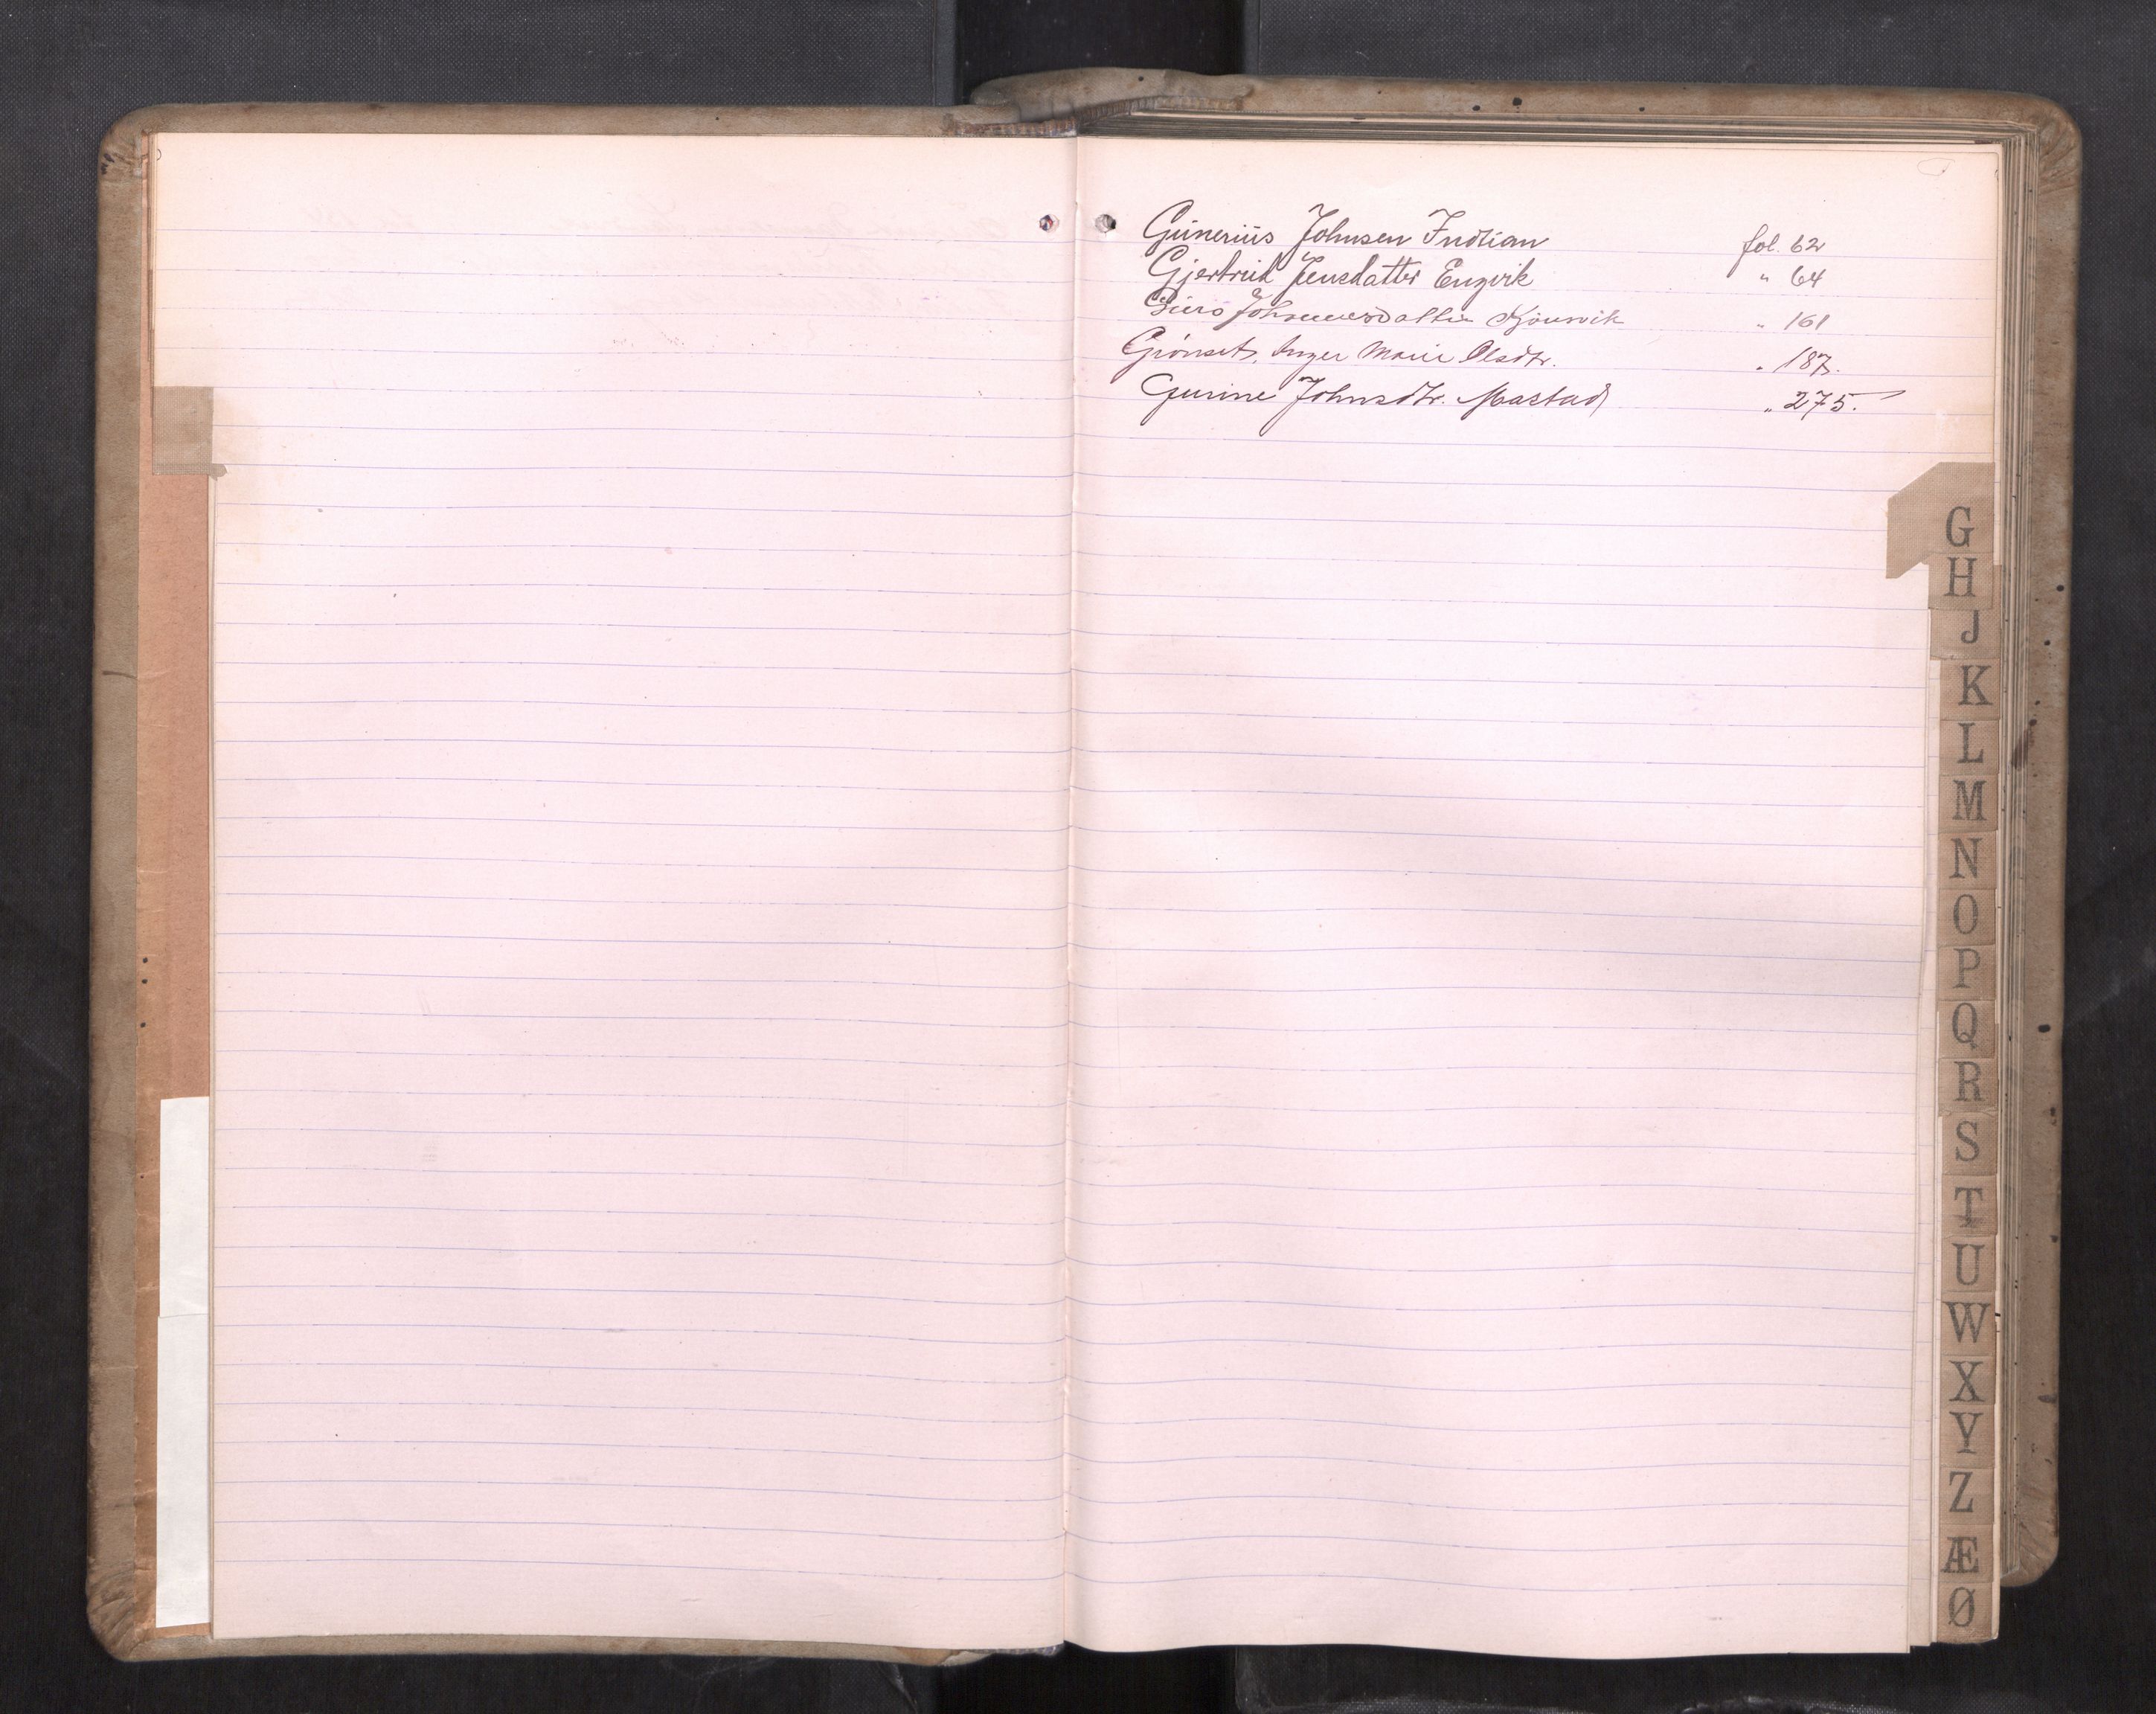 Gunerius Johnsen Indlian fol. 62
Gjertrud Jensdatter Engvik " 64
Guro Johannesdatter " 161
Grønset, Inger Marie Olsdtr. " 187.
Gurine Johnsdtr. Mastad " 275.
G
H
J
K
L
M
N
O
P
Q
R
S
T
U
W
X
Y
Z
Æ
Ø